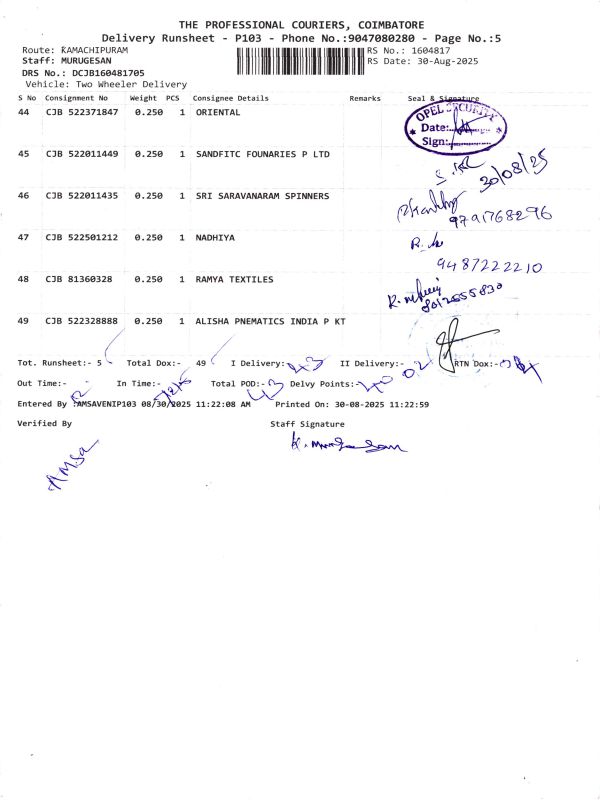 THE PROFESSIONAL COURIERS, COIMBATORE
Delivery Runsheet - P103 - Phone No.:9047080280 - Page No.:5
Route: KAMACHIPURAM RS No.: 1604817
Staff: MURUGESAN RS Date: 30-Aug-2025
DRS No.: DCJB160481705
Vehicle: Two Wheeler Delivery
S No Consignment No Weight PCS Consignee Details Remarks Seal & Signature
44 CJB 522371847 0.250 1 ORIENTAL
OPEL SECURITY
Date:
Sign:
45 CJB 522011449 0.250 1 SANDFITC FOUNARIES P LTD
30/08/25
46 CJB 522011435 0.250 1 SRI SARAVANARAM SPINNERS
9791768296
47 CJB 522501212 0.250 1 NADHIYA
9487222210
48 CJB 81360328 0.250 1 RAMYA TEXTILES
49 CJB 522328888 0.250 1 ALISHA PNEMATICS INDIA P KT
Tot. Runsheet:- 5 Total Dox:- 49 I Delivery:- 43 II Delivery:- 02 RTN Dox:-
Out Time:- In Time:- Total POD:- 43 Delvy Points:- 40
Entered By :AMSAVENIP103 08/30/2025 11:22:08 AM Printed On: 30-08-2025 11:22:59
Verified By Staff Signature
Amsa K. Murugesan